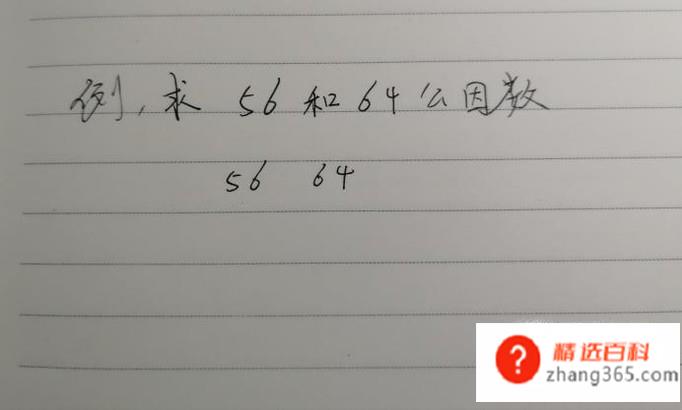 例,求 56 和 64 公因数
56 64
精选百科
zhang365.com